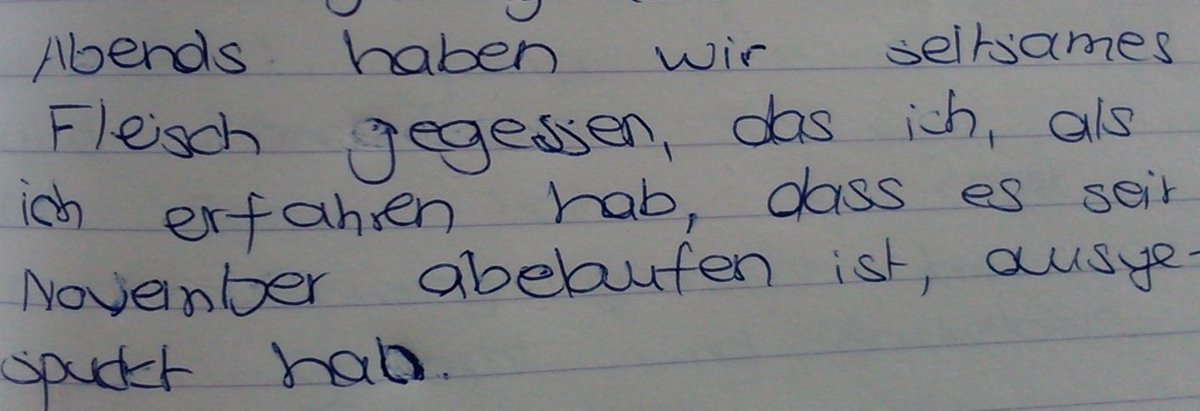 Abends haben wir seltsames
Fleisch gegessen, das ich, als
ich erfahren hab, dass es seit
November abelaufen ist, ausge-
spuckt hab.